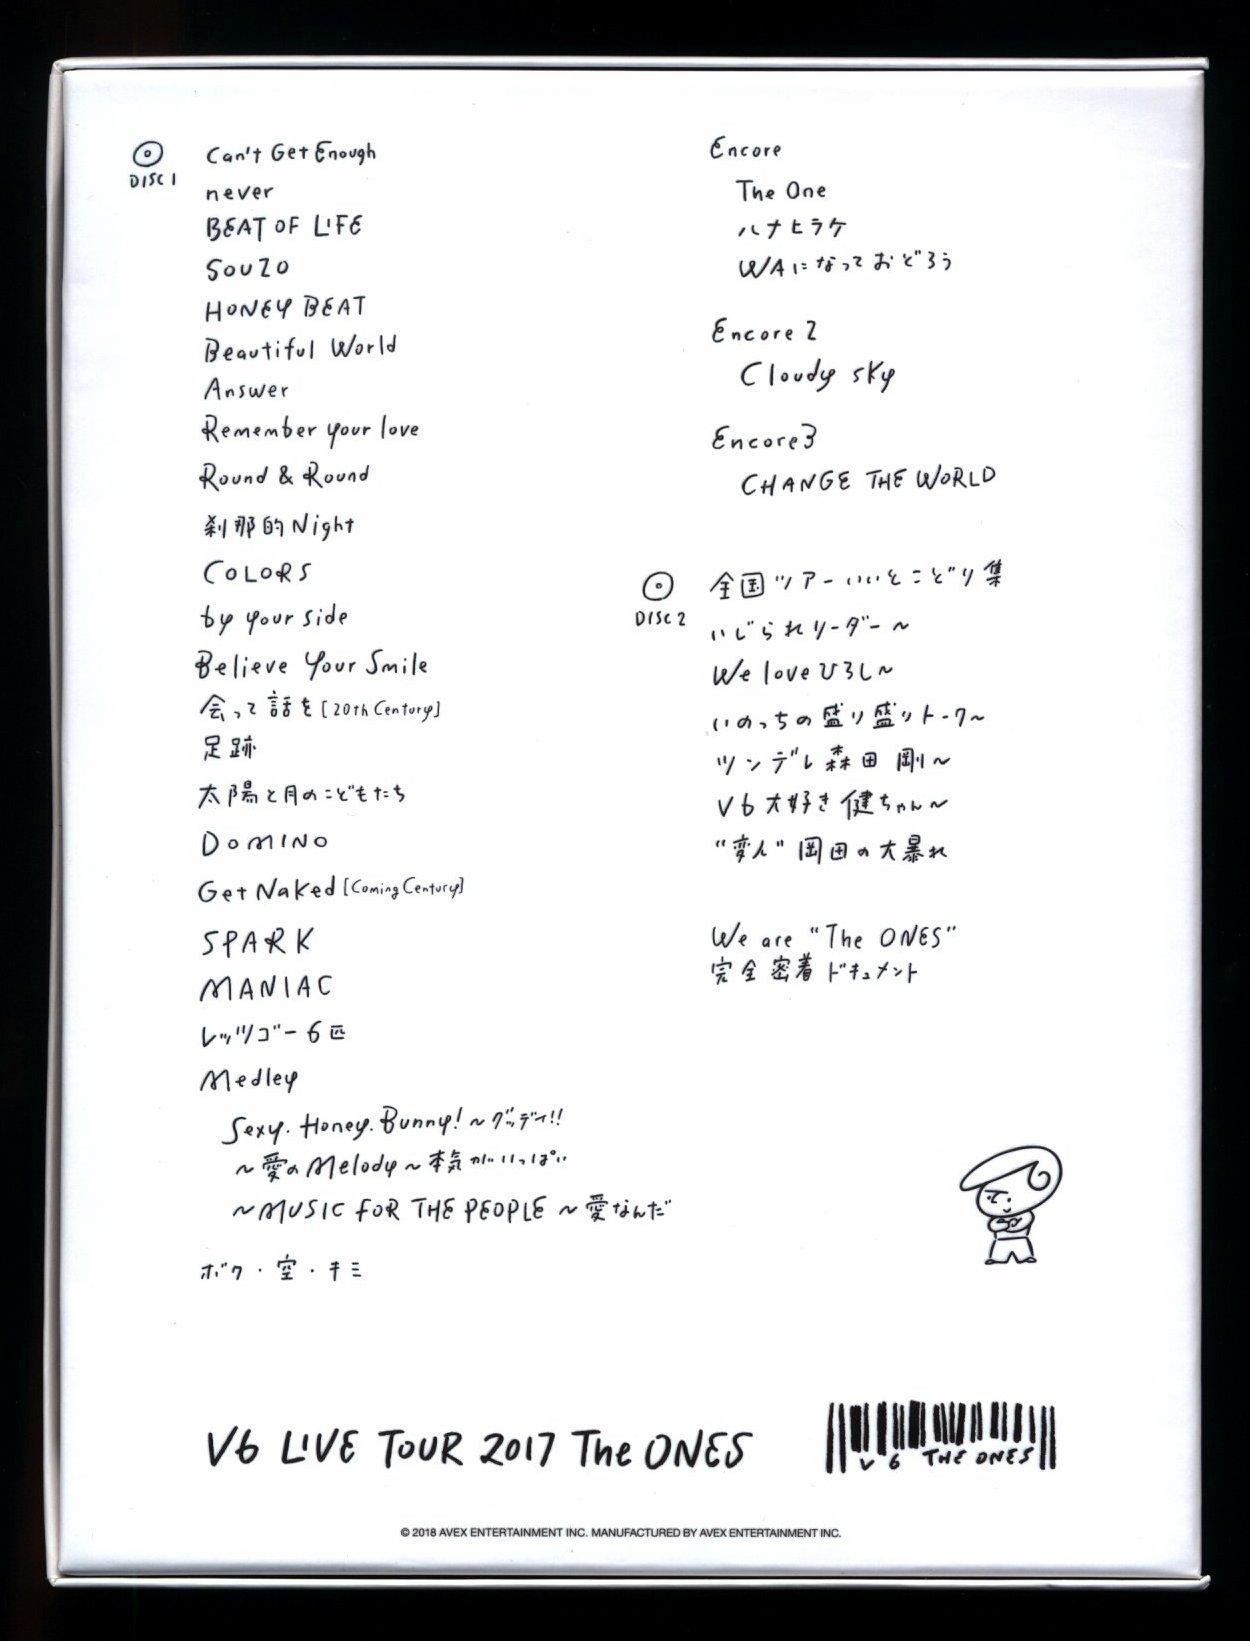 DISC 1
Can't Get Enough
never
BEAT OF LIFE
SOUZO
HONEY BEAT
Beautiful World
Answer
Remember your love
Round & Round
刹那的Night
COLORS
by your side
Believe Your Smile
会って話を[20th Century]
足跡
太陽と月のこどもたち
DOMINO
Get Naked [Coming Century]
SPARK
MANIAC
レッツゴー6匹
Medley
Sexy. Honey. Bunny! ~グッデイ!!
~愛のMelody~本気がいっぱい
~MUSIC FOR THE PEOPLE ~愛なんだ
ボク・空・キミ
Encore
The One
ハナヒラケ
WAになっておどろう
Encore 2
Cloudy sky
Encore3
CHANGE THE WORLD
DISC 2
全国ツアーいいとこどり集
いじられリーダー~
We loveひろし~
いのっちの盛り盛りトーク~
ツンデレ森田剛~
V6大好き健ちゃん~
"変人"岡田の大暴れ
We are "The ONES"
完全密着ドキュメント
V6 LIVE TOUR 2017 The ONES
V6 THE ONES
© 2018 AVEX ENTERTAINMENT INC. MANUFACTURED BY AVEX ENTERTAINMENT INC.